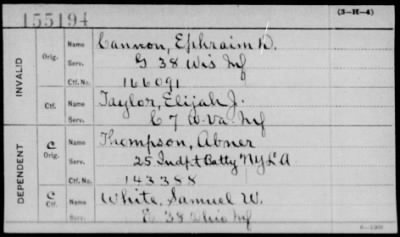 155194
(3-H-4)
INVALID
Orig. Name Cannon, Ephraim D.
Serv. G 38 Wis Inf
Ctf. No. 166091
Ctf. Name Taylor, Elijah J.
Serv. C 7 W. Va. Inf
DEPENDENT
C Orig. Name Thompson, Abner
Serv. 25 Indpt Batty N.Y.L.A
Ctf. No. 143388
C Ctf. Name White, Samuel W.
Serv. 38 Ohio Inf